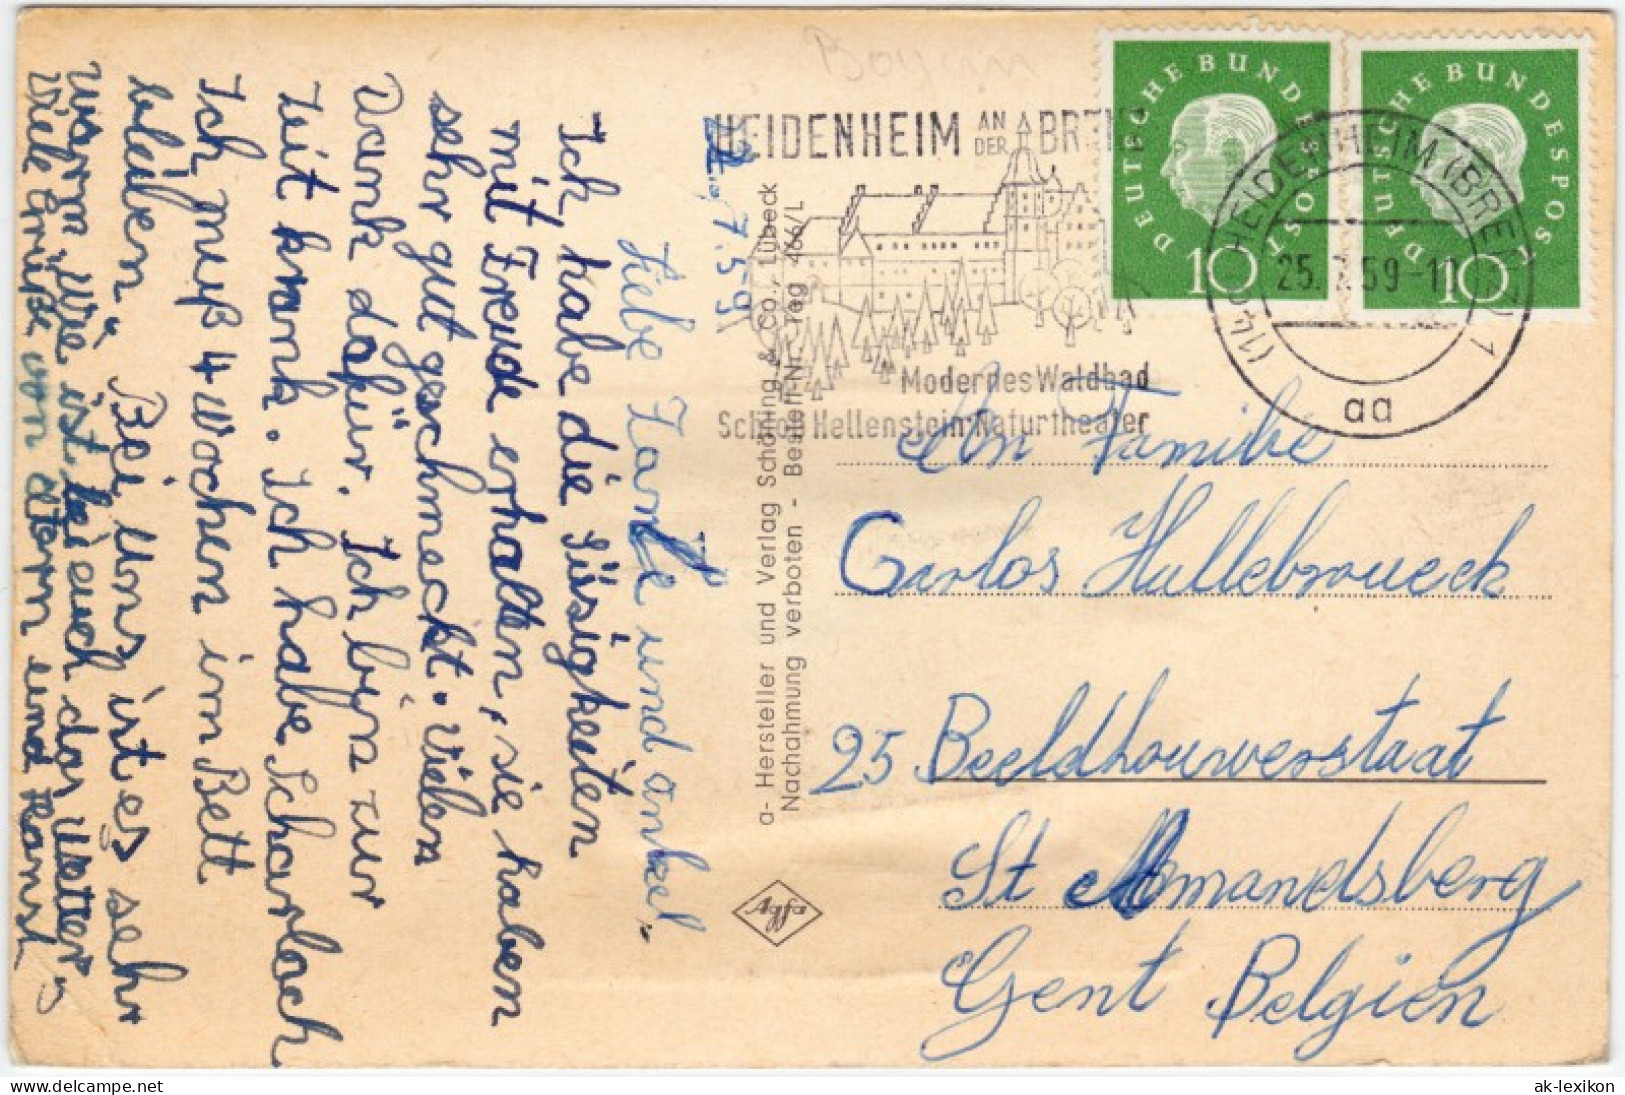 Bayern
22. 7. 59
Liebe Tante und onkel.
Ich habe die Süsigkeiten
mit Freude erhalten, sie haben
sehr gut geschmeckt. Vielen
Dank dafür. Ich bin zur
Zeit krank. Ich habe Scharlach
Ich muß 4 Wochen im Bett
bleiben. Bei uns ist es sehr
warm. Wie ist bei euch das Wetter.
Viele Grüße von
und Hans
a- Hersteller und Verlag Schöning & Co., Lübeck
Nachahmung verboten - Bestell-Nr. Tag 466/L
Agfa
HEIDENHEIM AN DER BRENZ
Modernes Waldbad
Schloß Hellenstein·Naturtheater
DEUTSCHE BUNDESPOST
10
DEUTSCHE BUNDESPOST
10
(14a) HEIDENHEIM (BRENZ) 1
25. 7. 59-1
aa
An Familie
Carlos Hullebroueck
25 Beeldhouwerstraat
St Amandsberg
Gent Belgien
© ak-lexikon.de
ak-lexikon